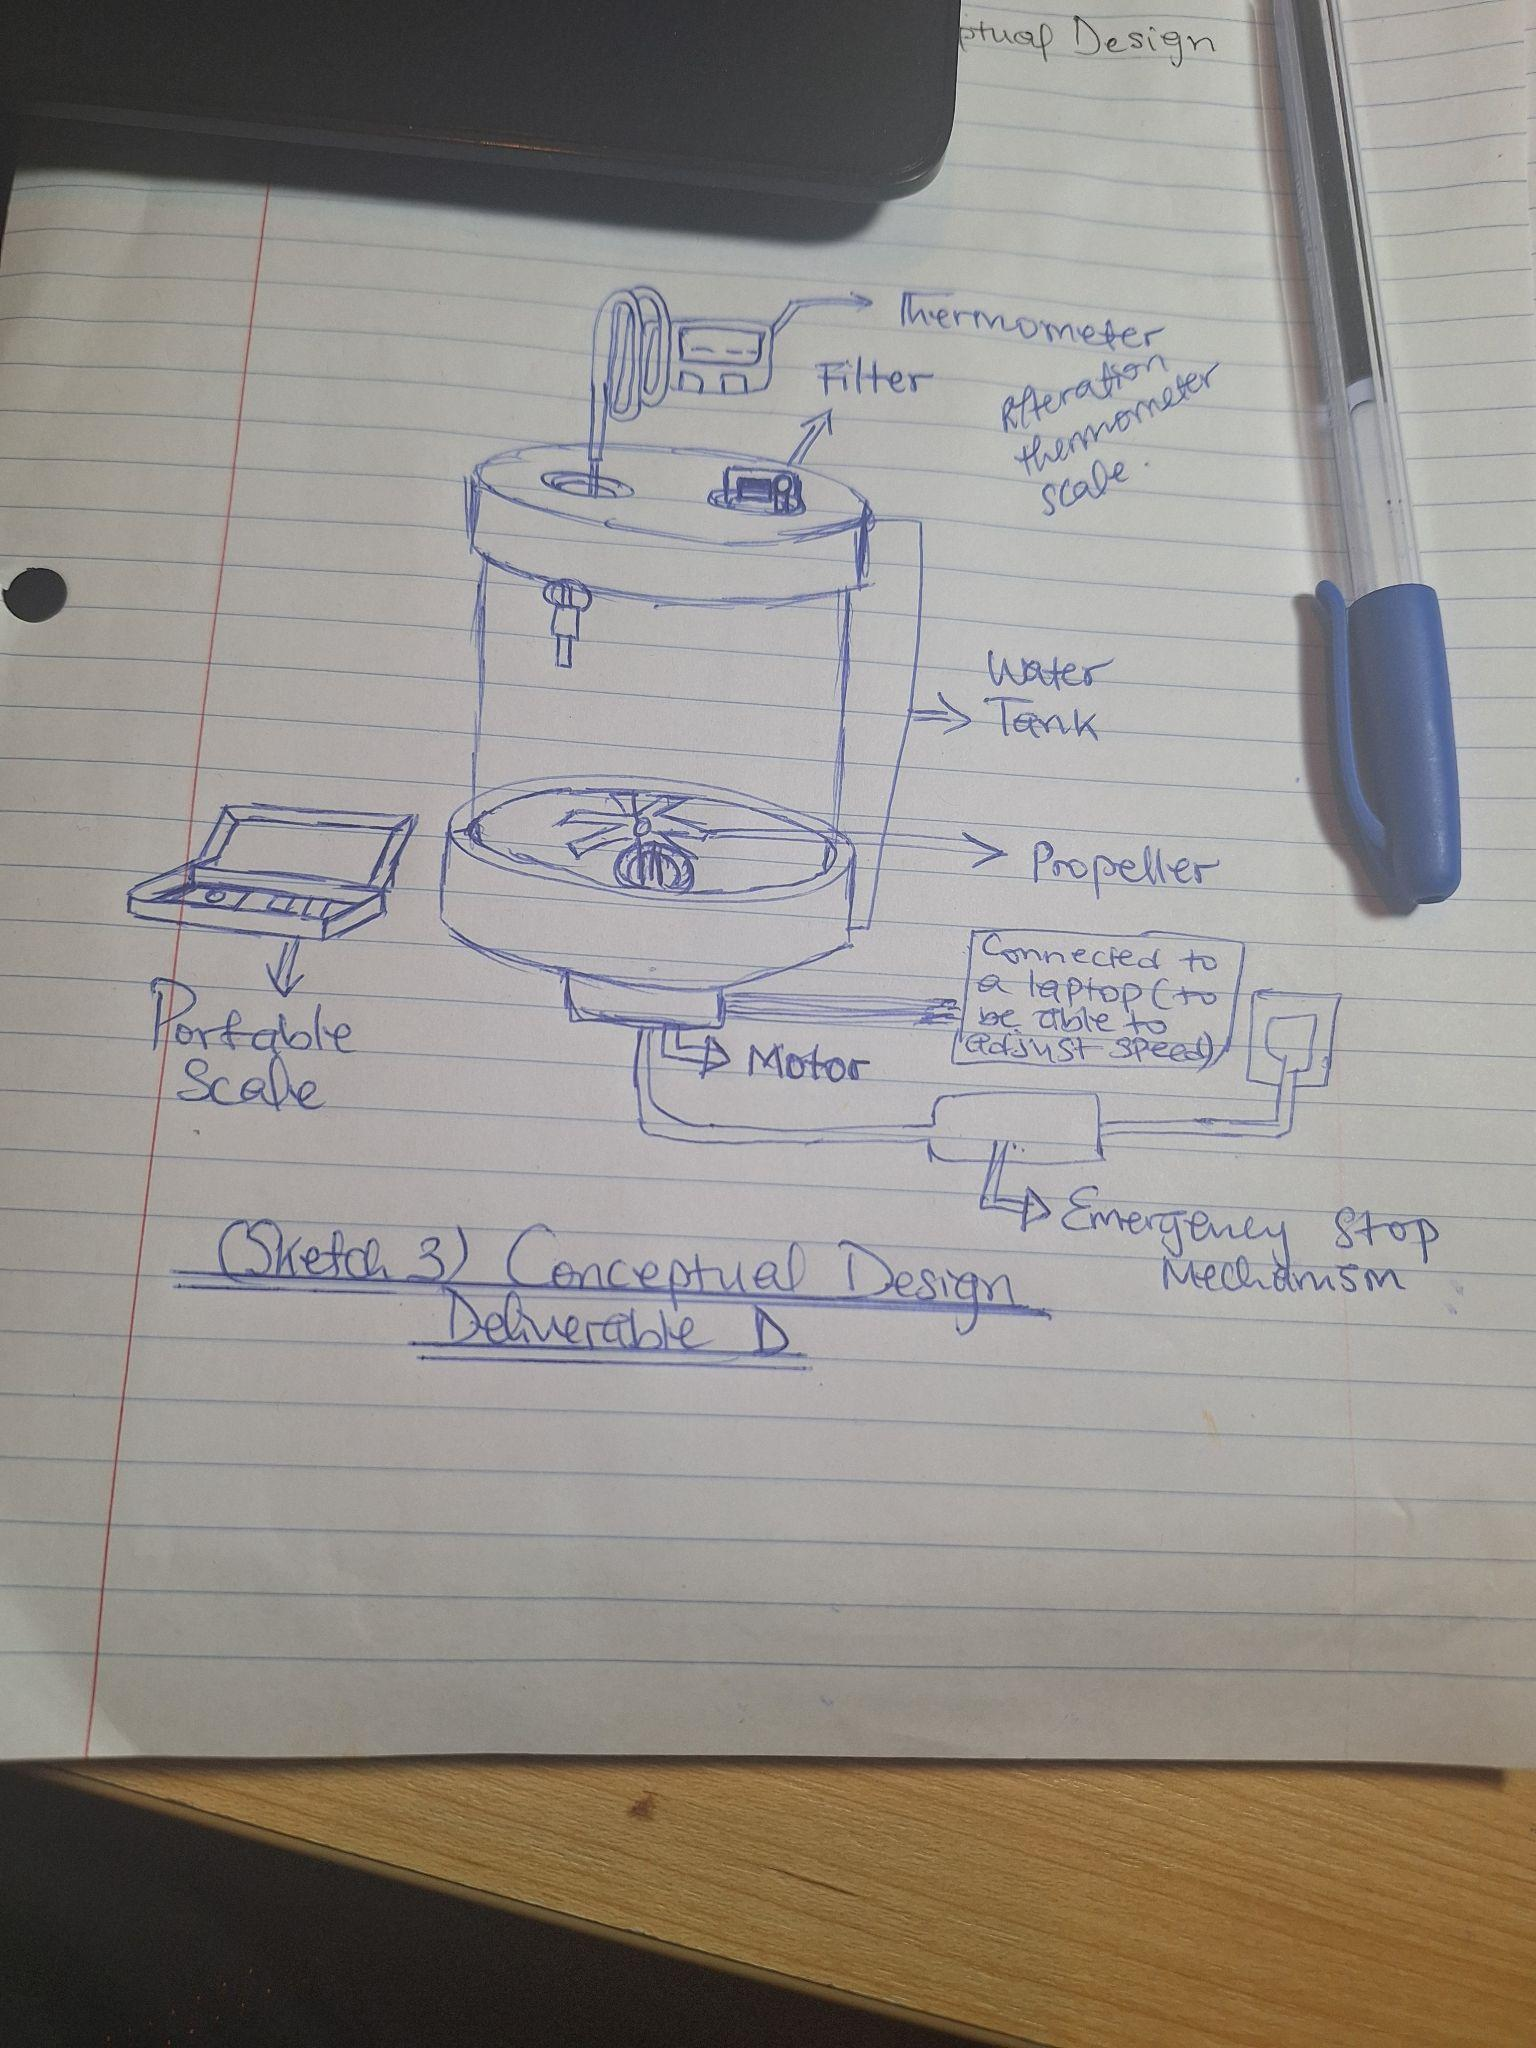 ptual Design
Thermometer
Filter
thermometer
scale.
Water
Tank
Propeller
Connected to
a laptop (to
be able to
adjust speed)
Portable
Scale
Motor
Emergency Stop
Mechanism
(Sketch 3) Conceptual Design
Deliverable D